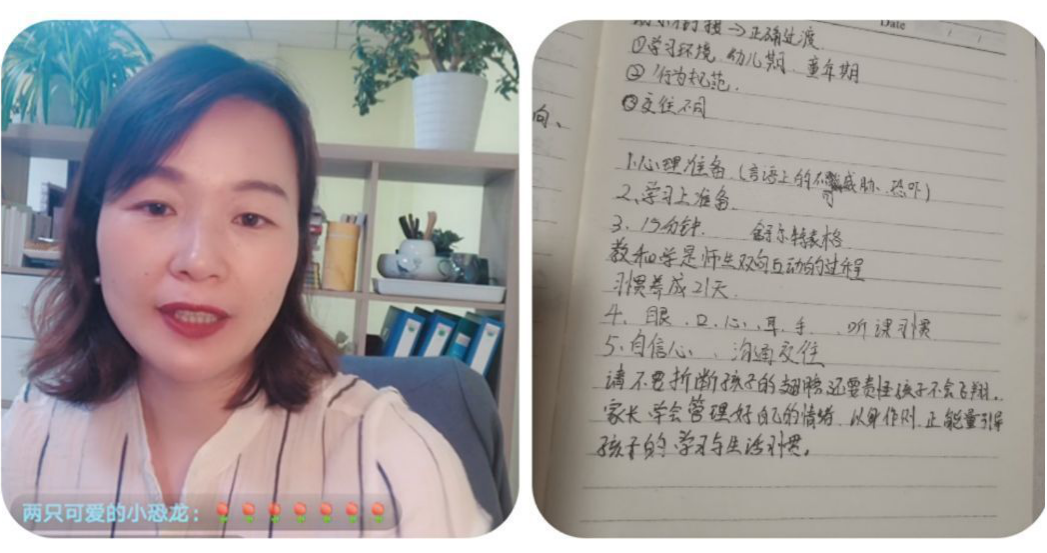 两只可爱的小恐龙：
Date
正确过渡
①学习环境、幼儿期、童年期
② 行为规范.
③交往不同
向、
1.心理准备（言语上的 威胁、恐吓）
2、学习上准备
3、15分钟. 舒尔特表格
教和学是师生双向互动的过程
习惯养成21天.
4、眼、口、心、耳、手、听课习惯
5、自信心、沟通交往
请不要折断孩子的翅膀还要责怪孩子不会飞翔.
家长学会管理好自己的情绪 以身作则.正能量引导
孩子的学习与生活习惯。